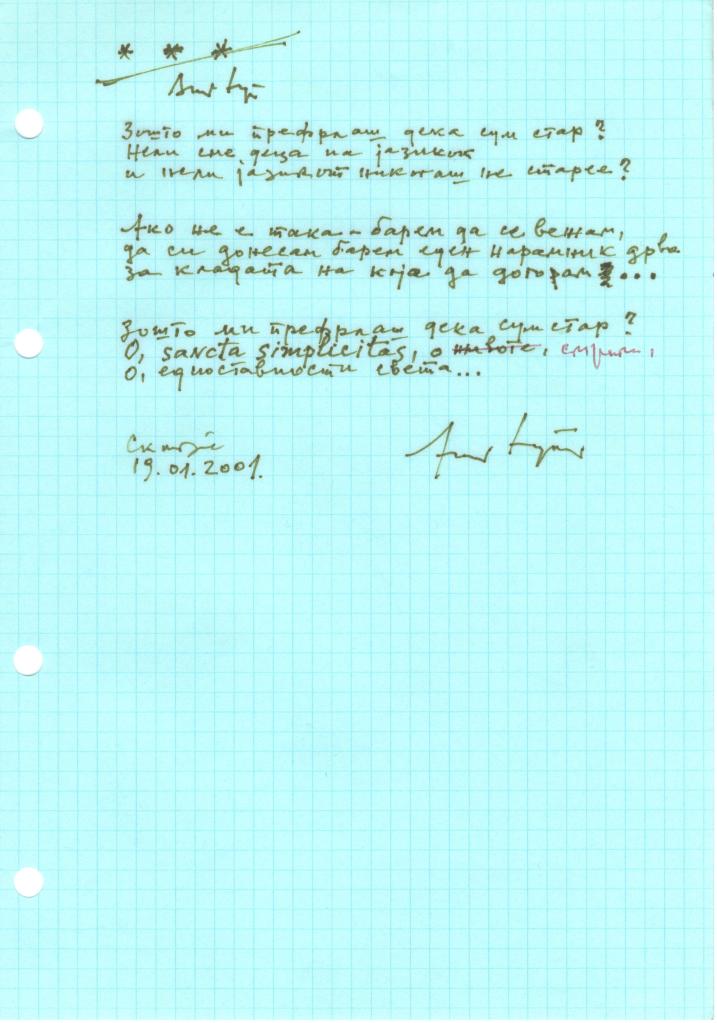 * * *
Зошто ми префрлаш дека сум стар?
Нели сме деца на јазикот
и нели јазикот никогаш не старее?
Ако не е така – барем да се вежам,
да си донесам барем еден нарамник дрва
за кладата на која да догорам ...
Зошто ми префрлаш дека сум стар?
О, sancta simplicitas, о животе,
О, едноставности света...
Скопје
19.01.2001.